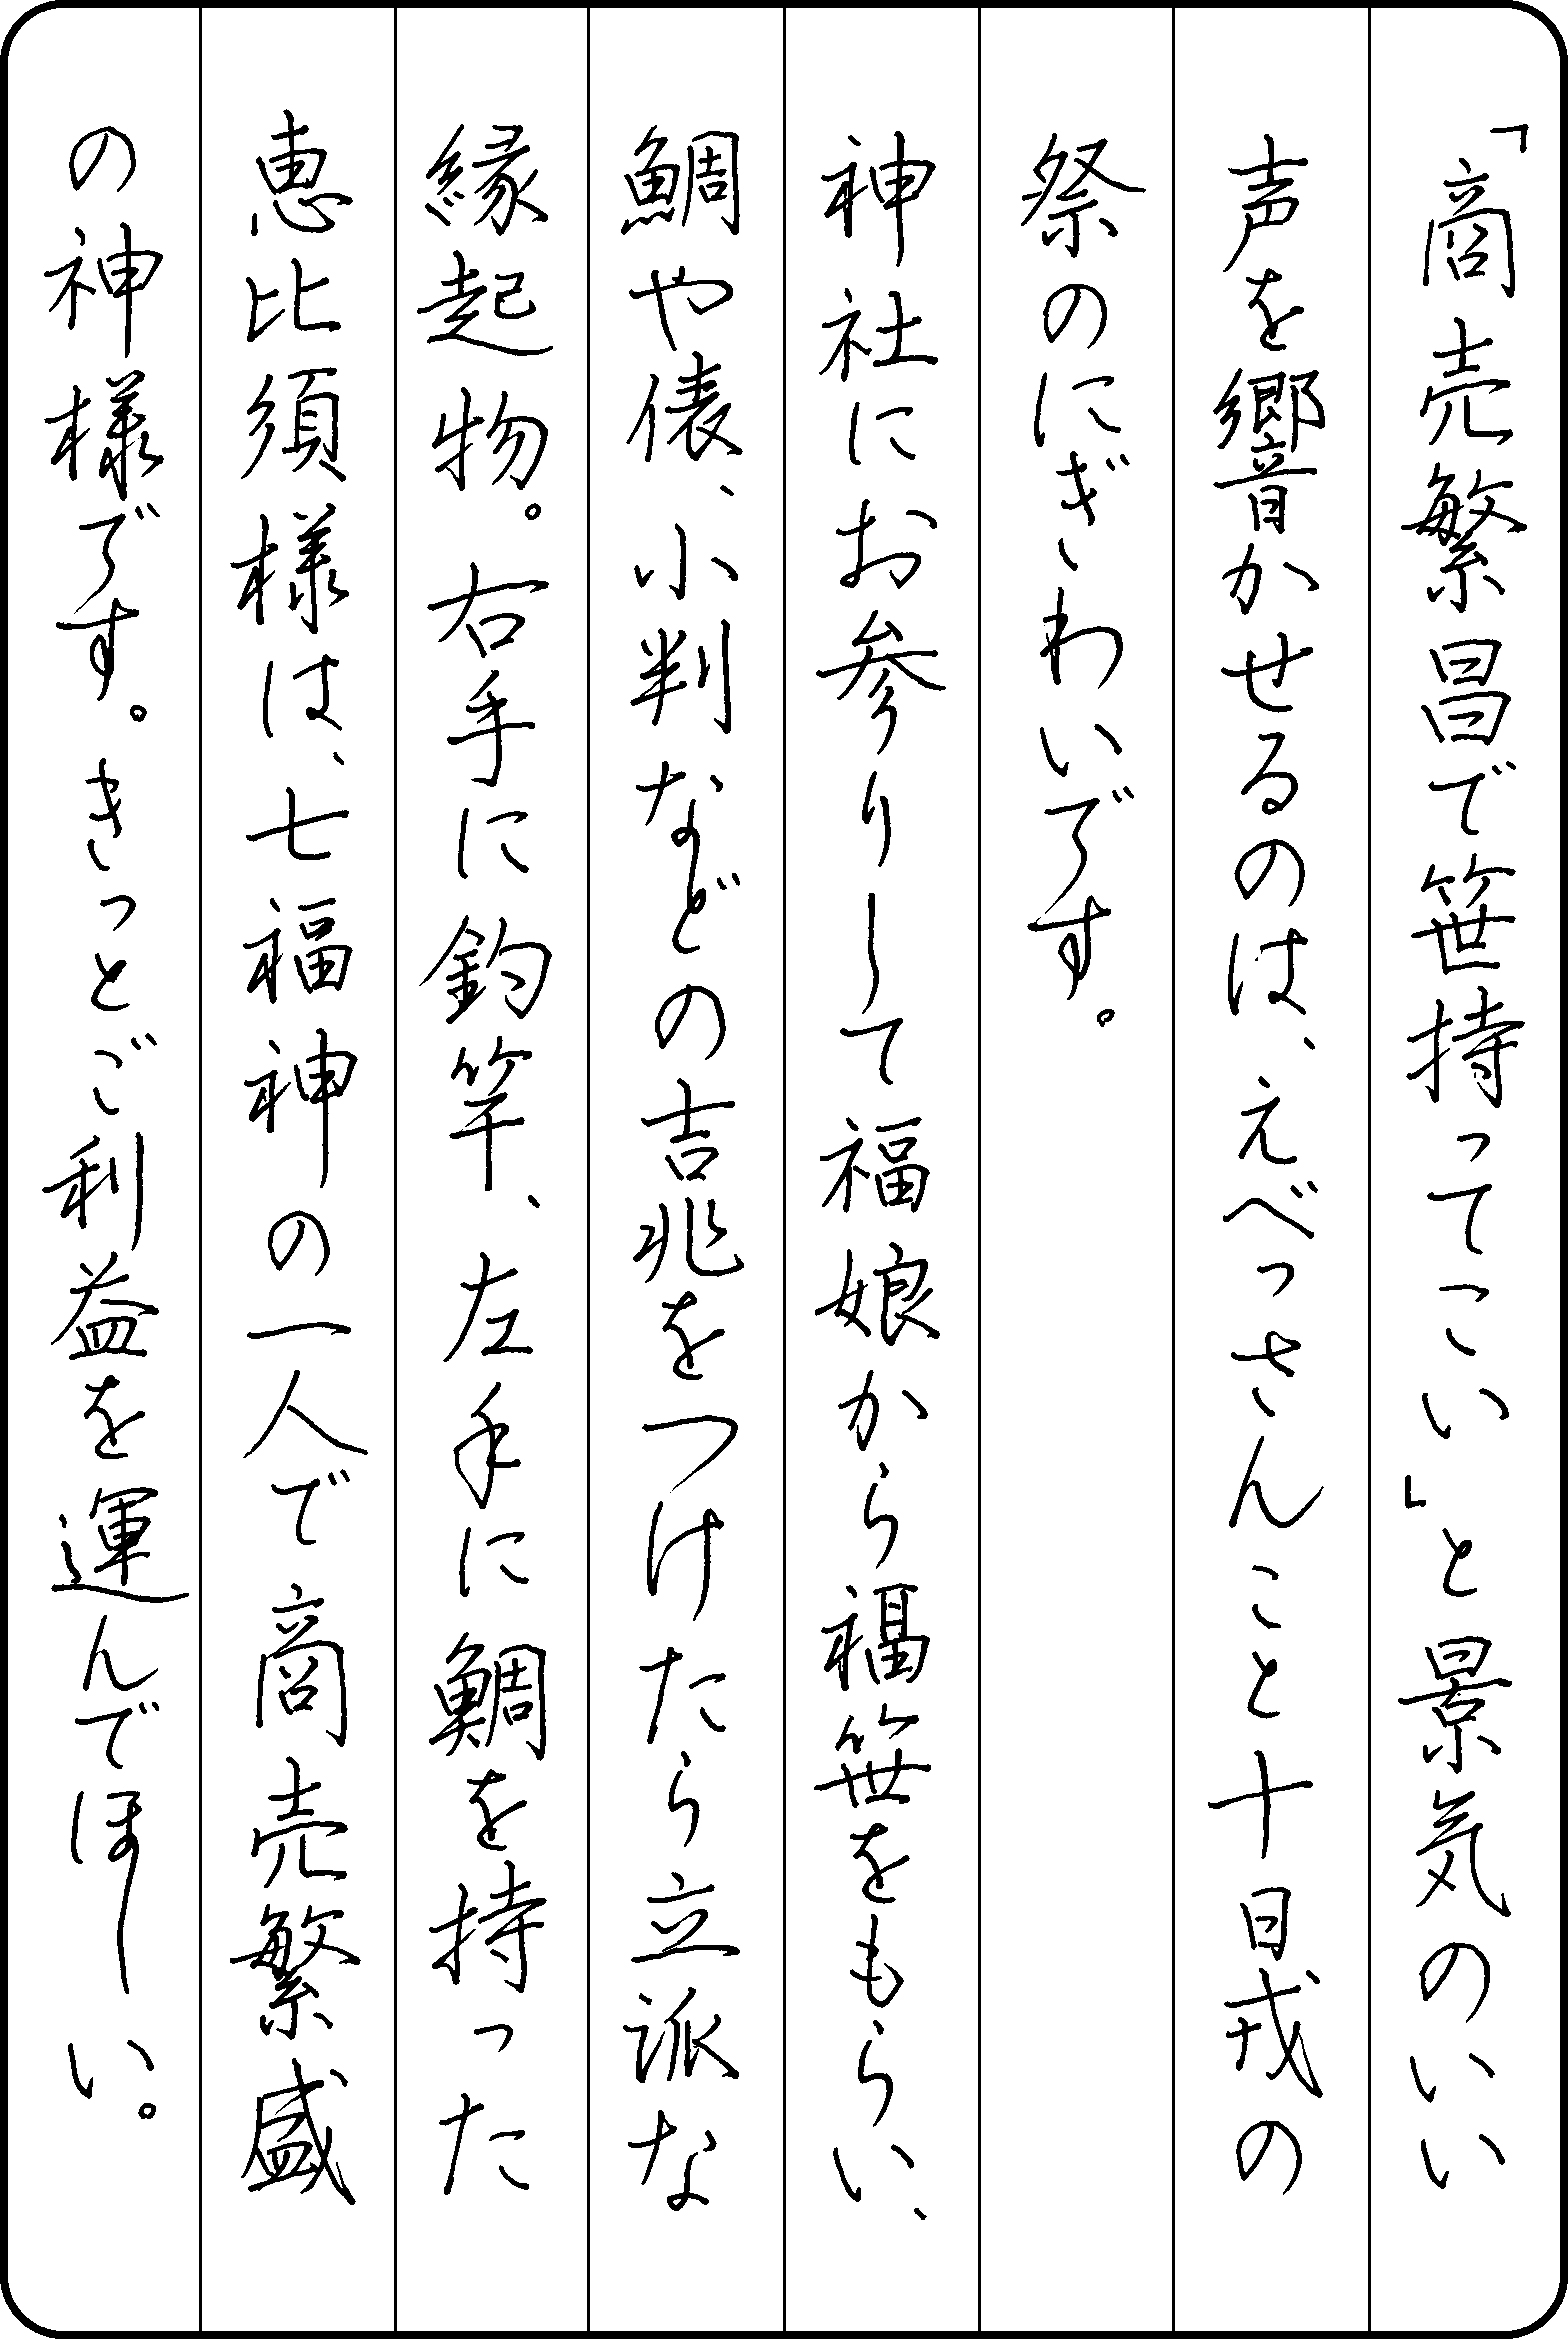 「商売繁昌で笹持ってこい」と景気のいい
声を響かせるのは、えべっさんこと十日戎の
祭のにぎわいです。
神社にお参りして福娘から福笹をもらい、
鯛や俵、小判などの吉兆をつけたら立派な
縁起物。右手に釣竿、左手に鯛を持った
恵比須様は、七福神の一人で商売繁盛
の神様です。きっとご利益を運んでほしい。